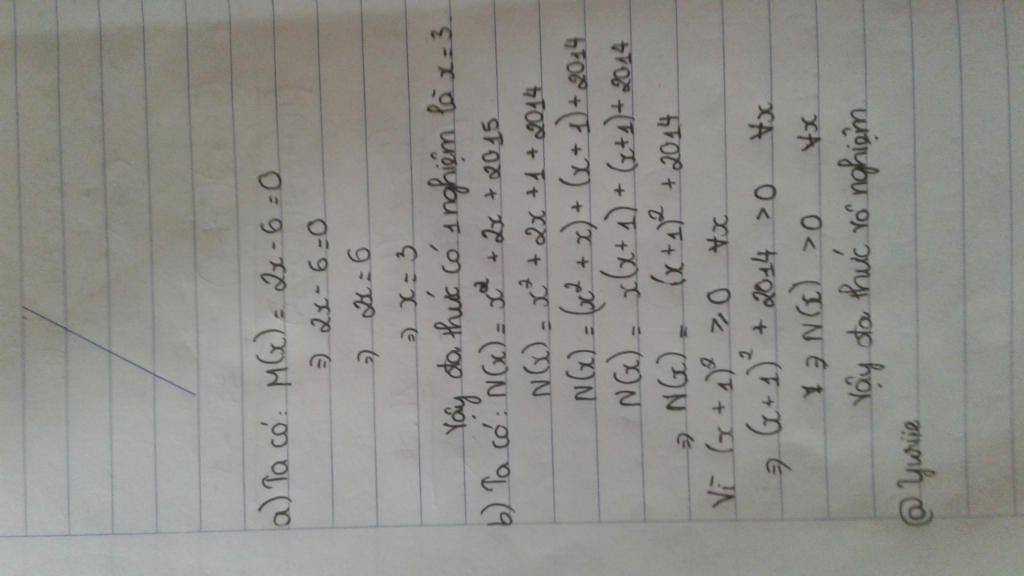 a) Ta có: M(x) = 2x - 6 = 0
⇒ 2x - 6 = 0
⇒ 2x = 6
⇒ x = 3
Vậy đa thức có 1 nghiệm là x = 3.
b) Ta có: N(x) = x² + 2x + 2015
N(x) = x² + 2x + 1 + 2014
N(x) = (x² + x) + (x + 1) + 2014
N(x) = x(x + 1) + (x + 1) + 2014
⇒ N(x) = (x + 1)² + 2014
Vì (x + 1)² ≥ 0 ∀x
⇒ (x + 1)² + 2014 > 0 ∀x
⇒ N(x) > 0 ∀x
Vậy đa thức vô nghiệm